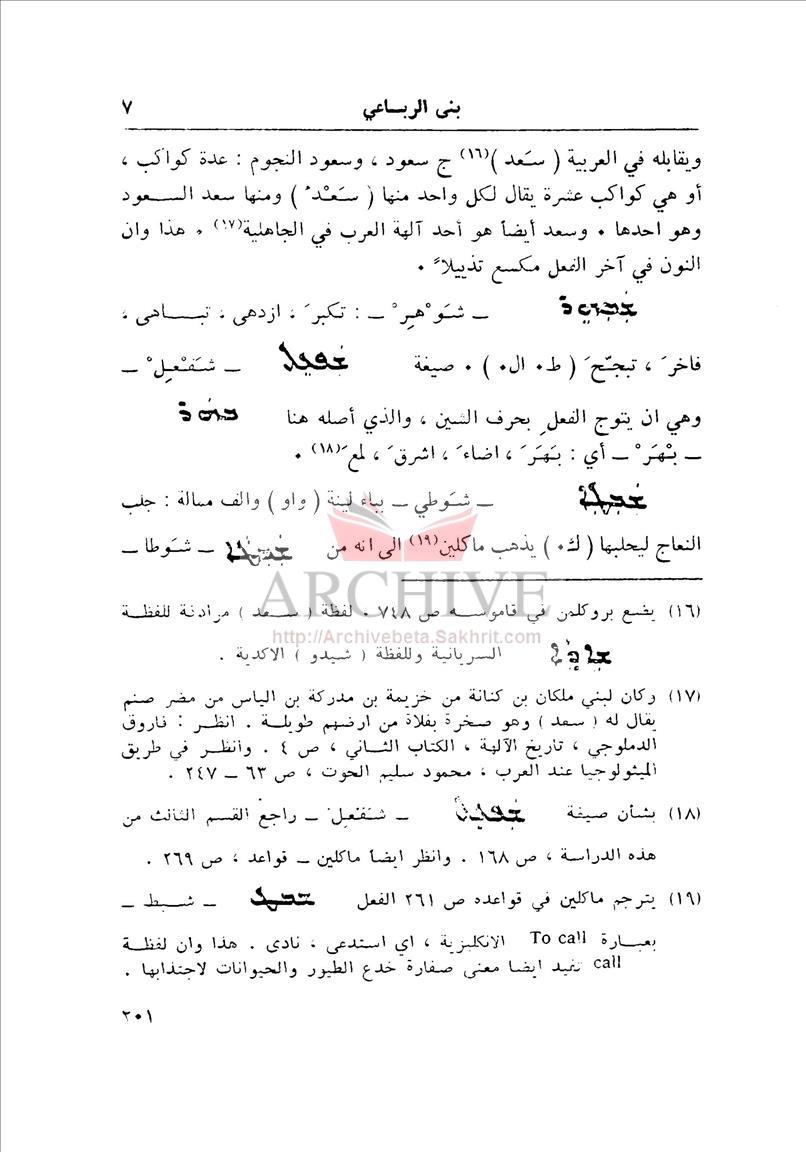 بنى الرباعي ٧
ويقابله في العربية ( سَعد )(١٦) ج سعود ، وسعود النجوم : عدة كواكب ،
أو هي كواكب عشرة يقال لكل واحد منها ( سَعْدُ ) ومنها سعد السعود
وهو احدها ٠ وسعد أيضاً هو أحد آلهة العرب في الجاهلية(١٧) ٠ هذا وان
النون في آخر الفعل مكسع تذييلاً ٠
ــ شَوْهِرْ ــ : تكبرَ ، ازدهى ، تباهى ،
فاخرَ ، تبجّحَ ( ط٠ ال٠ ) ٠ صيغة ــ شَفْعِلْ ــ
وهي ان يتوج الفعل بحرف الشين ، والذي أصله هنا
ــ بْهَرْ ــ أي : بَهَرَ ، اضاءَ ، اشرقَ ، لمعَ(١٨) ٠
ــ شَوطي ــ بياء لينة ( واو ) والف ممالة : جلب
النعاج ليحلبها ( ك٠ ) يذهب ماكلين(١٩) الى انه من ــ شَوطا ــ
ARCHIVE
http://Archivebeta.Sakhrit.com
(١٦) يضع بروكلمن في قاموسه ص ٧٤٨ ٠ لفظة ( سعد ) مرادنة للفظة
السريانية وللفظة ( شيدو ) الاكدية .
(١٧) وكان لبني ملكان بن كنانة من خزيمة بن مدركة بن الياس من مضر صنم
يقال له ( سعد ) وهو صخرة بفلاة من ارضهم طويلة . انظر : فاروق
الدملوجي ، تاريخ الآلهة ، الكتاب الثاني ، ص ٤ . وانظر في طريق
الميثولوجيا عند العرب ، محمود سليم الحوت ، ص ٦٣ ــ ٢٤٧ .
(١٨) بشأن صيغة ــ شَفْعِل ــ راجع القسم الثالث من
هذه الدراسة ، ص ١٦٨ . وانظر ايضاً ماكلين ــ قواعد ، ص ٢٦٩ .
(١٩) يترجم ماكلين في قواعده ص ٢٦١ الفعل ــ شبط ــ
بعبارة To call الانكليزية ، اي استدعى ، نادى . هذا وان لفظة
call تفيد ايضا معنى صفارة خدع الطيور والحيوانات لاجتذابها .
٢٠١